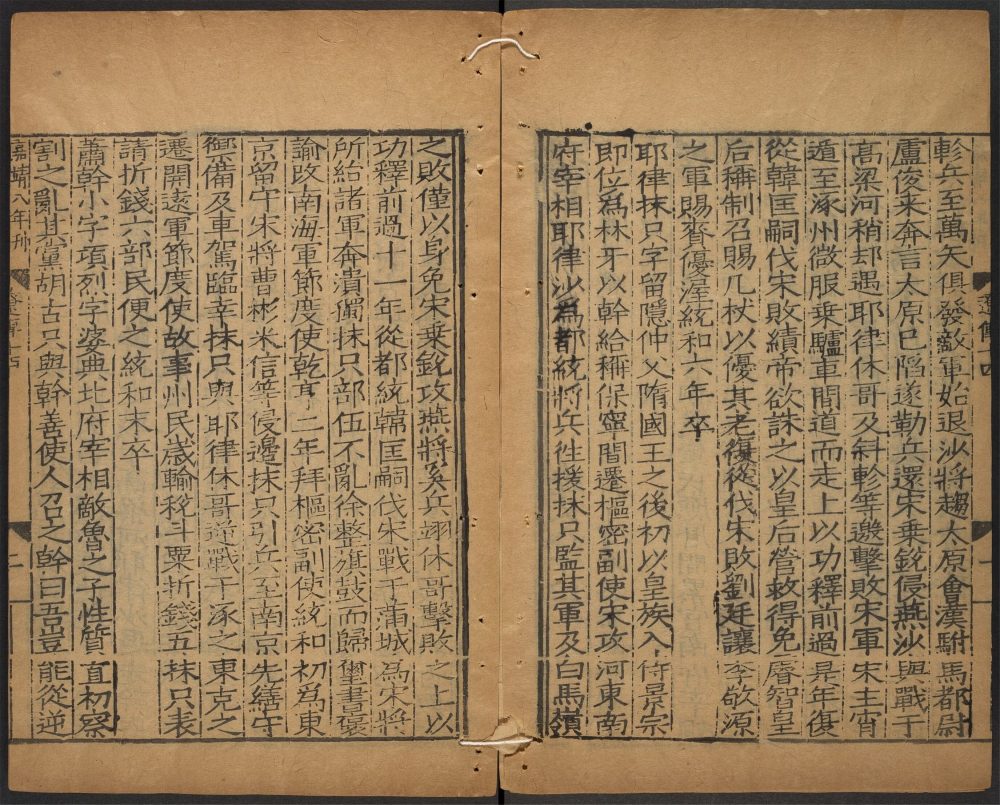 軫兵至萬矢俱發敵軍始退沙將趨太原會漢駙馬都尉
盧俊来奔言太原已陷遂勒兵還宋乗銳侵燕沙與戰于
髙梁河稍却遇耶律休哥及斜軫等邀擊敗宋軍宋主宵
遁至涿州微服乗驢車間道而走上以功釋前過是年復
從韓匡嗣伐宋敗績帝欲誅之以皇后營救得免睿智皇
后稱制召賜几杖以優其老復從伐宋敗劉廷讓李敬源
之軍賜賚優渥統和六年卒
耶律抹只字留隱仲父隋國王之後初以皇族入侍景宗
即位為林牙以幹給稱保寧間遷樞密副使宋攻河東南
府宰相耶律沙為都統將兵徃援抹只監其軍及白馬嶺
遼傳十四
一
之敗僅以身免宋乗銳攻燕將奚兵翊休哥擊敗之上以
功釋前過十一年從都統韓匡嗣伐宋戰于蒲城為宋將
所紿諸軍奔潰獨抹只部伍不亂徐整旗鼓而歸璽書褒
諭改南海軍節度使乾亨二年拜樞密副使統和初為東
京留守宋將曹彬米信等侵邊抹只引兵至南京先繕守
禦備及車駕臨幸抹只與耶律休哥逆戰于涿之東克之
遷開逺軍節度使故事州民歲輸稅斗粟折錢五抹只表
請折錢六部民便之統和末卒
蕭幹小字項烈字婆典北府宰相敵魯之子性質直初察
割之亂其黨胡古只與幹善使人召之幹曰吾豈能從逆
嘉靖八年刋
二